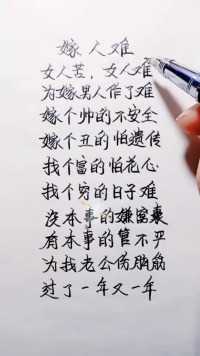 嫁人难
女人苦，女人难
为嫁男人作了难
嫁个帅的不安全
嫁个丑的怕遗传
找个富的怕花心
找个穷的日子难
没本事的嫌窝囊
有本事的管不严
为找老公伤脑筋
过了一年又一年